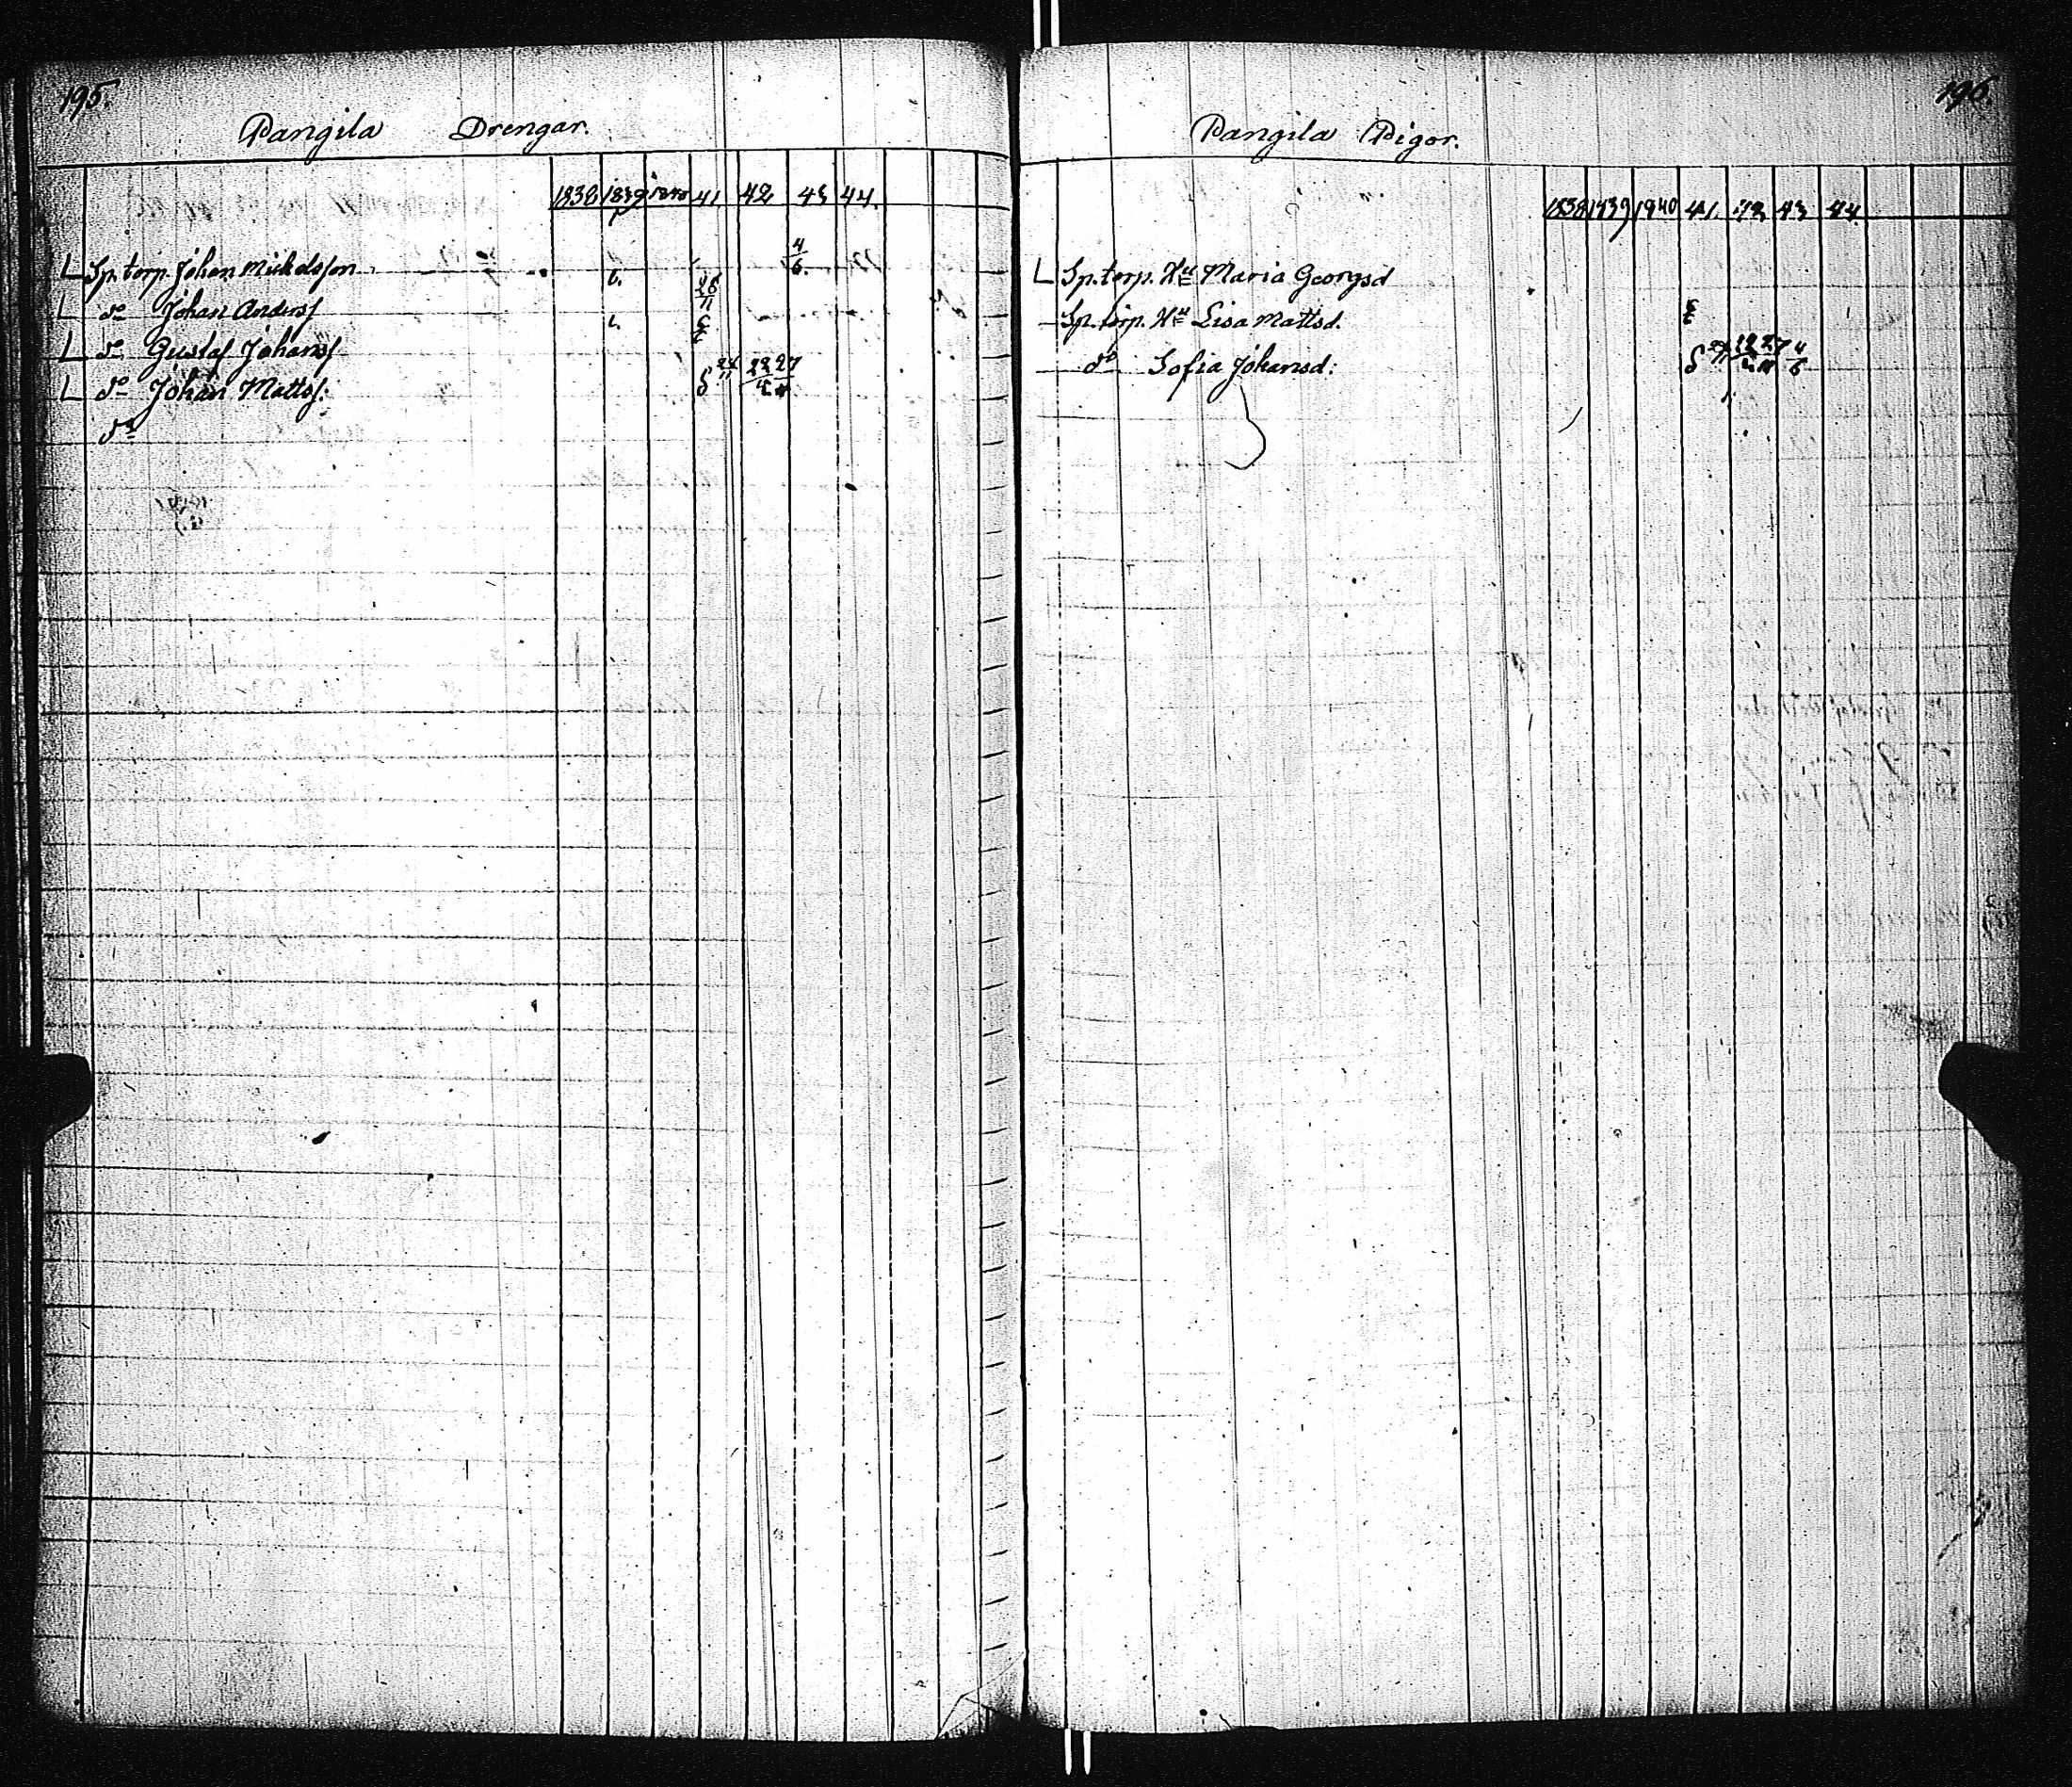 195.
Pangila Drengar.
1838 1839 1840 41. 42. 43 44.
4/6.
Sp. torp. Johan Mickelsson
26/11
do Johan Andersf
do Gustaf Johansf
24/11 22 27
do Johan Mattsf.
do
196.
Pangila Pigor.
1838 1839 1840 41. 42. 43 44.
Sp. torp. Hu Maria Georgsd
Sp. torp. Hu Lisa Mattsd.
do Sofia Johansd: 4/6